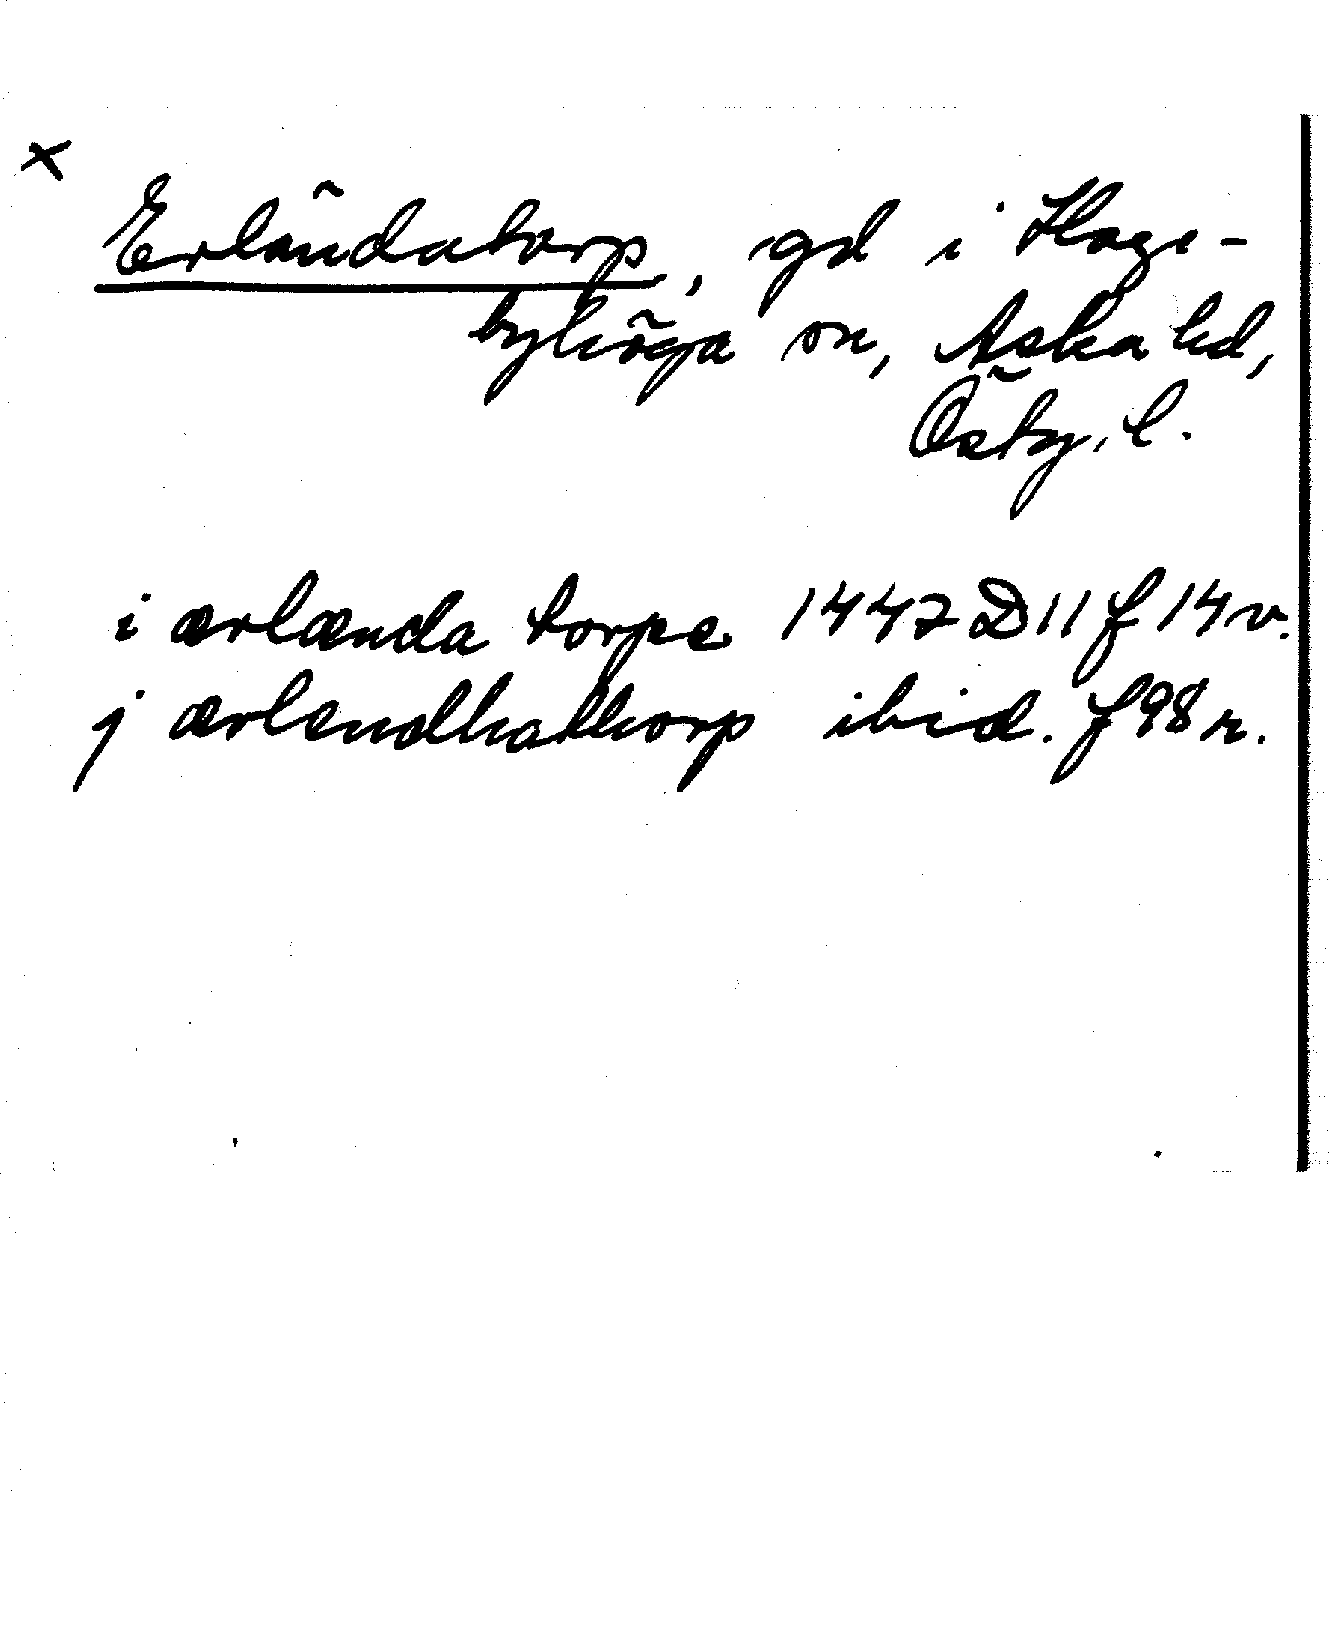 x
Erländatorp, gd i Hage-
byhöga sn, Aska hd,
Östg. l.
i ærlænda torpe 1447 D 11 f 14 v.
j ærlendhathorp ibid. f 98 r.